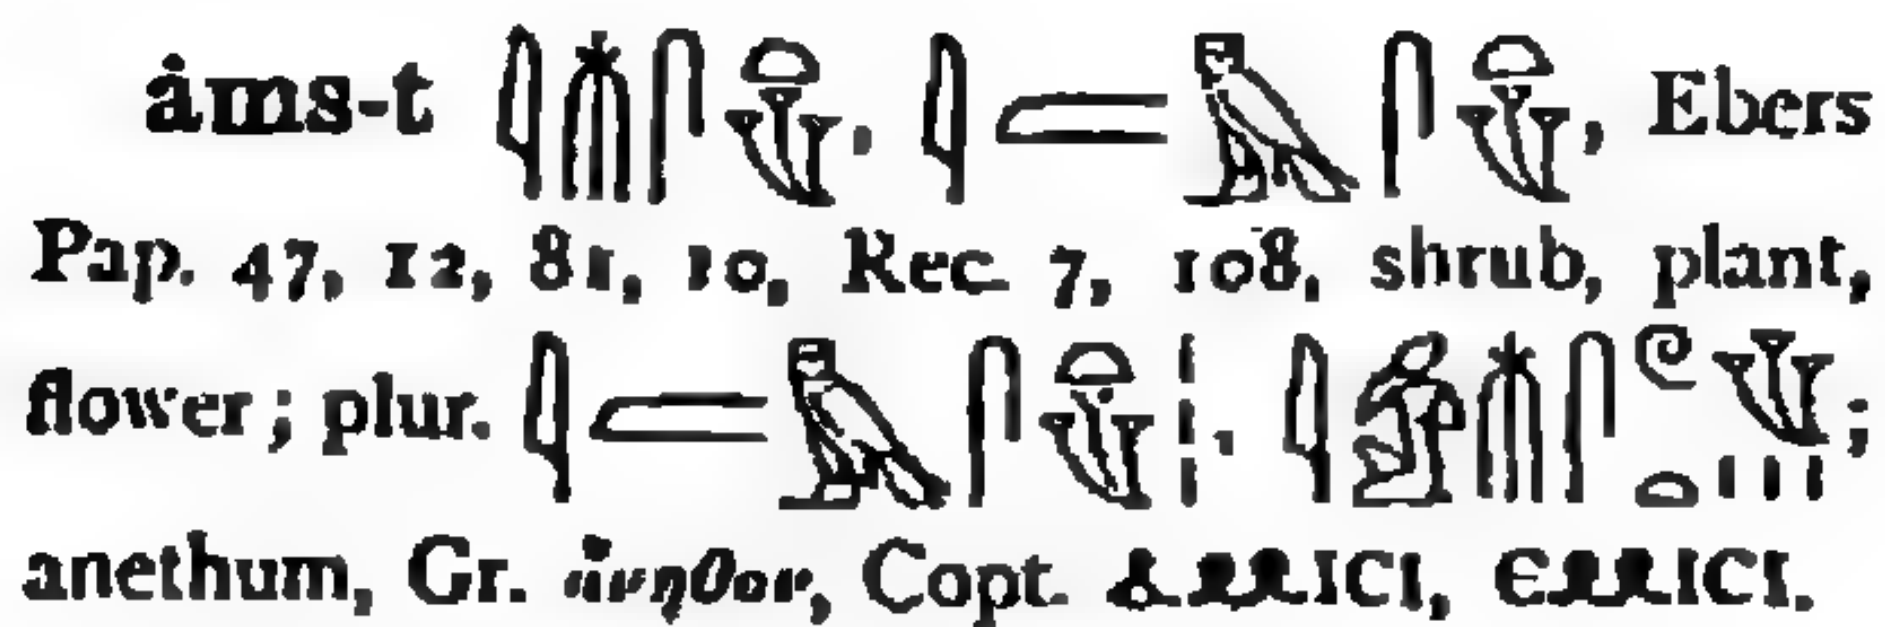 ȧms-t 𓇋𓄟𓋴𓏏𓆰, 𓇋𓐝𓅓𓋴𓏏𓆰, Ebers
Pap. 47, 12, 81, 10, Rec. 7, 108, shrub, plant,
flower; plur. 𓇋𓐝𓅓𓋴𓏏𓆰𓏪, 𓇋𓀁𓄟𓋴𓏲𓆰𓏏𓏪;
anethum, Gr. ἄνηθον, Copt. ⲁⲙⲓⲥⲓ, ⲉⲙⲓⲥⲓ.